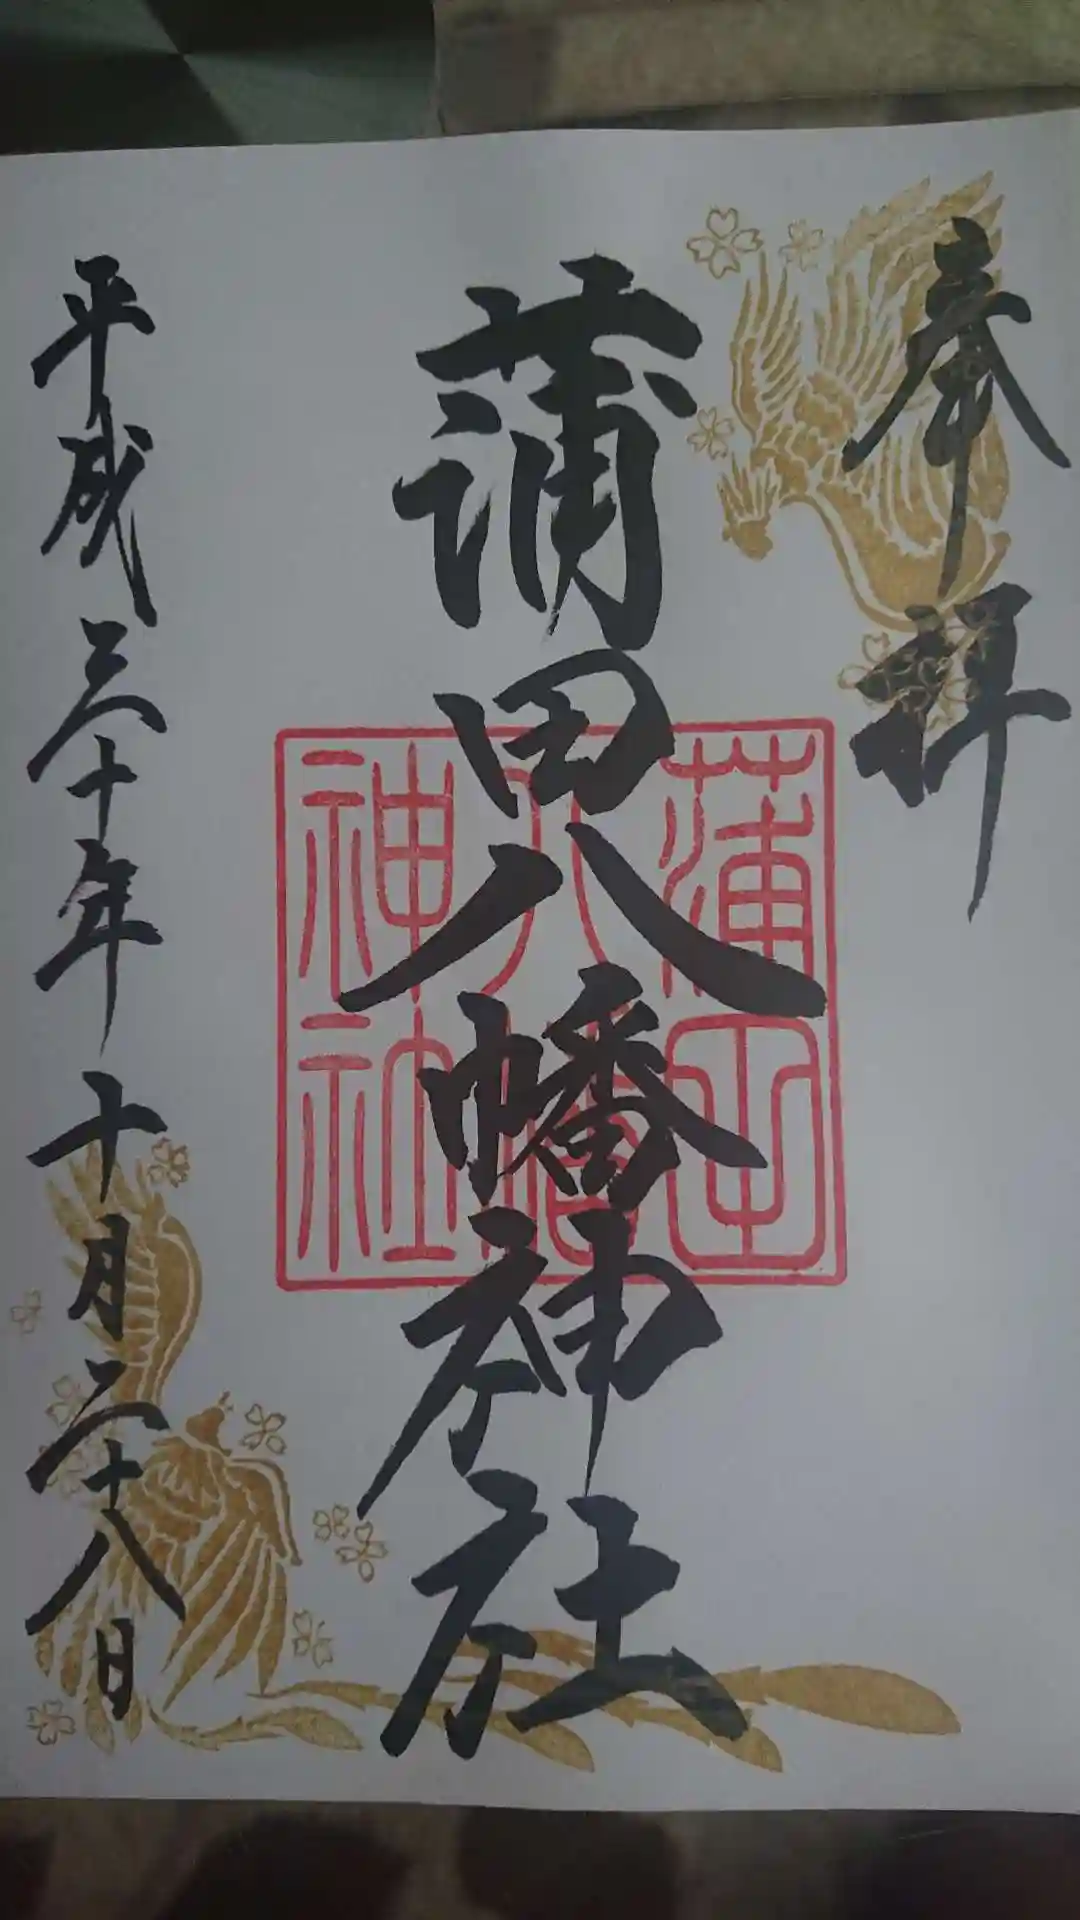 奉拝
蒲田八幡神社
蒲田
八幡
神社
平成三十年十月二十八日